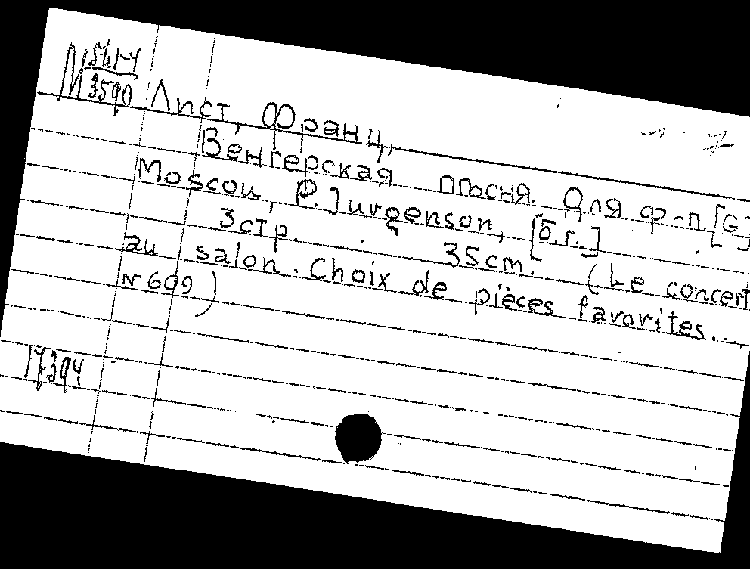 М 3590
Лист, Франц,
Венгерская пѣсня. Для ф-п [G]
Moscou, P. Jurgenson, [б.г.]
3 стр. 35 cm. (Le concert
au salon. Choix de pièces favorites...
№ 609)
17394